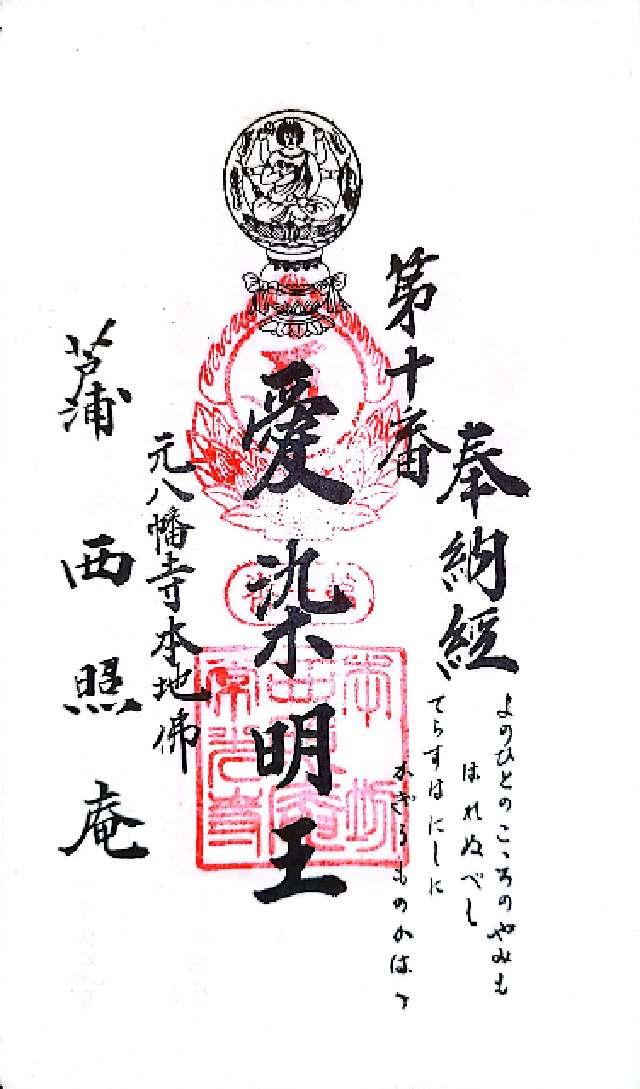 奉納経
第十番
よのひとのこゝろのやみも
はれぬべし
てらすはにしに
かぎるものかは
愛染明王
元八幡寺本地佛
蘆浦 西照庵